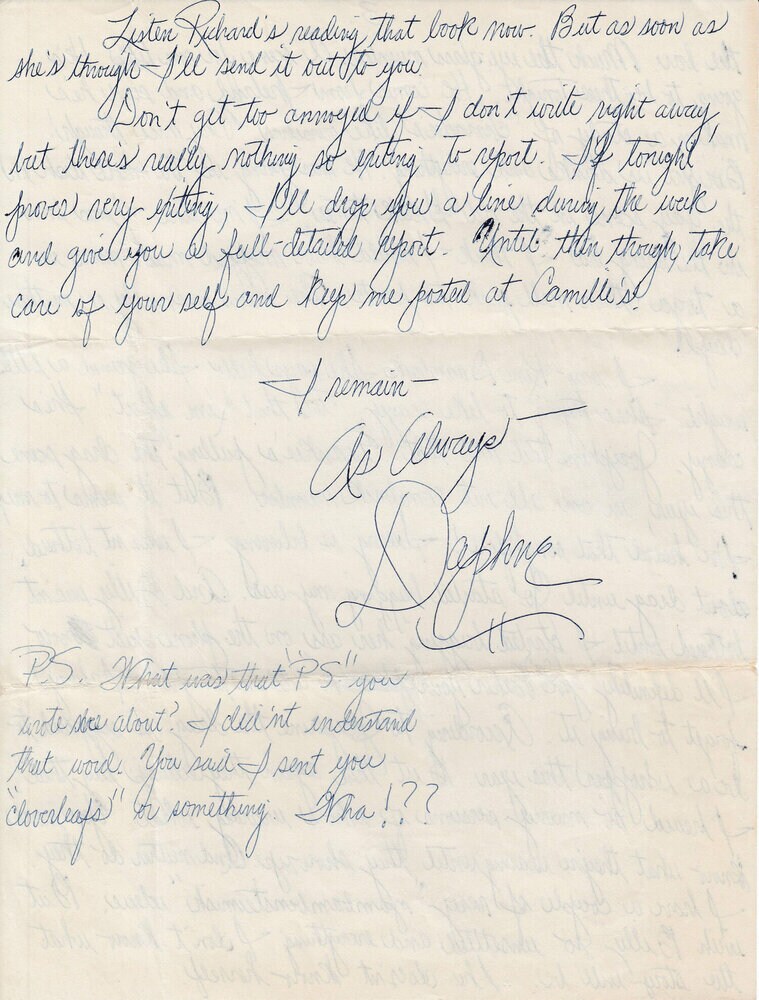 Listen Richard's reading that book now. But as soon as
she's through I'll send it out to you
Don't get too annoyed if I don't write right away
but there's really nothing so exiting to report. If tonight
proves very exiting, I'll drop you a line during the week
and give you a full-detailed report. Until then though, take
care of your self and keep me posted at Camille's.
I remain—
As Always—
Daphne
P.S. What was that "P.S." you
wrote me about? I did'nt understand
that word. You said I sent you
"cloverleafs" or something. Wha!??